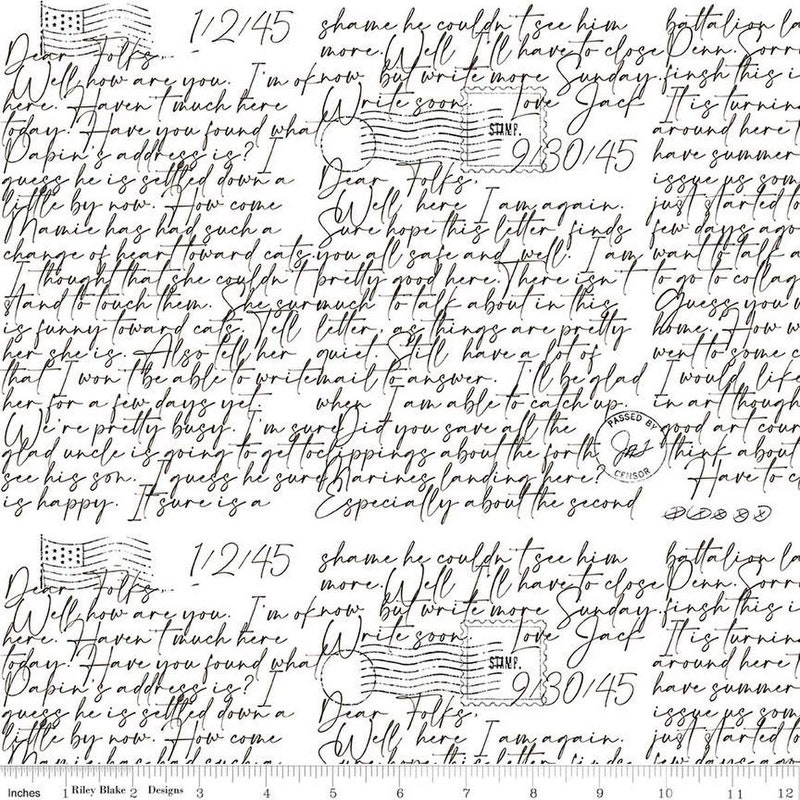 1/2/45
Dear Folks..
Well, how are you. I'm ok
here. Haven't much here
today. Have you found what
address is? I
guess he is settled down a
little by now. How come
Mamie has had such a
change of heart toward cats.
I thought that she couldn't
stand to touch them. She sure
is funny toward cats. Tell
her she is. Also tell her
that I won't be able to write
her for a few days yet.
We're pretty busy. I'm sure
glad uncle is going to get to
see his son. I guess he sure
is happy. It sure is a
shame he couldn't see him
more. Well I'll have to close
now but write more Sunday.
Write soon Love Jack
STAMP.
9/30/45
Dear Folks,
Well, here I am again.
Sure hope this letter finds
you all safe and well. I am
pretty good here. There isn't
much to talk about in this
letter, as things are pretty
quiet. Still have a lot of
mail to answer. I'll be glad
when I am able to catch up.
Did you save all the
clippings about the forth
Marines landing here?
Especially about the second
PASSED BY
CENSOR
battalion la
Denn. Sorry
finsh this i
It is turnin
around here t
have summer
issue us som
just started to
few days ago
want to talk a
to go to collag
Guess you w
home. How w
went to some c
I would like
in art though
good art cour
think about
Have to cl
1/2/45
Dear Folks..
Well, how are you. I'm ok
here. Haven't much here
today. Have you found what
address is? I
guess he is settled down a
little by now. How come
Mamie has had such a
shame he couldn't see him
more. Well I'll have to close
now but write more Sunday.
Write soon Love Jack
STAMP.
9/30/45
Dear Folks,
Well, here I am again.
Sure hope this letter finds
battalion la
Denn. Sorry
finsh this i
It is turnin
around here t
have summer
issue us som
just started to
few days ago
Inches 1 Riley Blake 2 Designs 3 4 5 6 7 8 9 10 11 12